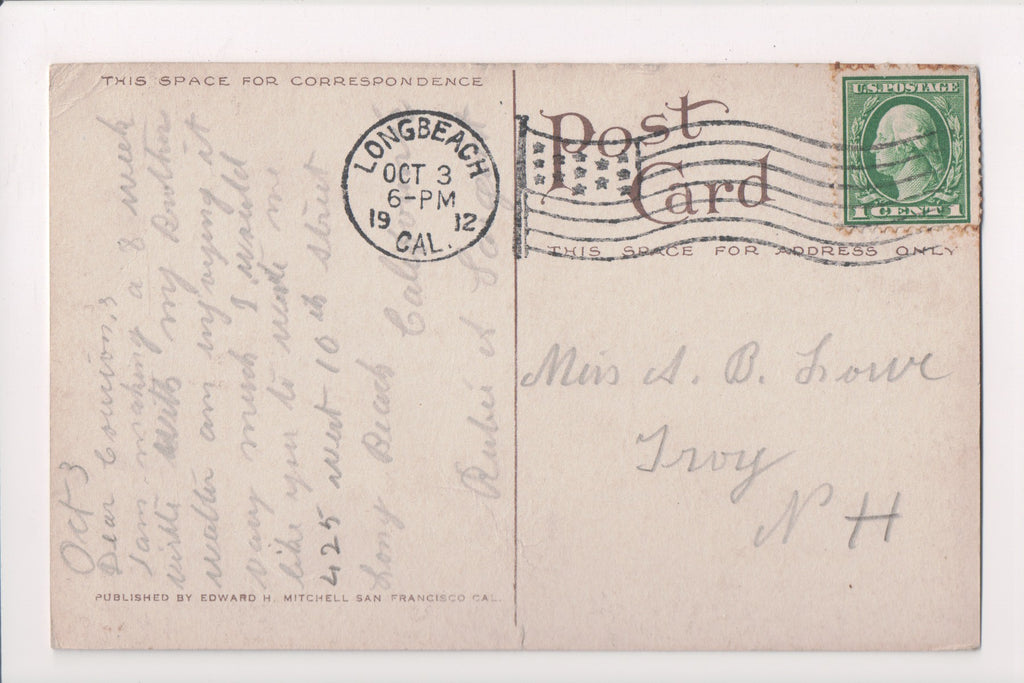 THIS SPACE FOR CORRESPONDENCE
Oct 3
Dear Cousin,
I am making a week
visite with my Brother
Walter am injoying it
very much I would
like you to write me
425 west 10 th street
Long Beach California
Rubie A
PUBLISHED BY EDWARD H. MITCHELL SAN FRANCISCO CAL.
LONGBEACH
OCT 3
6-PM
19 12
CAL.
Post
Card
U.S. POSTAGE
1 CENT 1
THIS SPACE FOR ADDRESS ONLY
Miss A. B. Lowe
Troy
N H